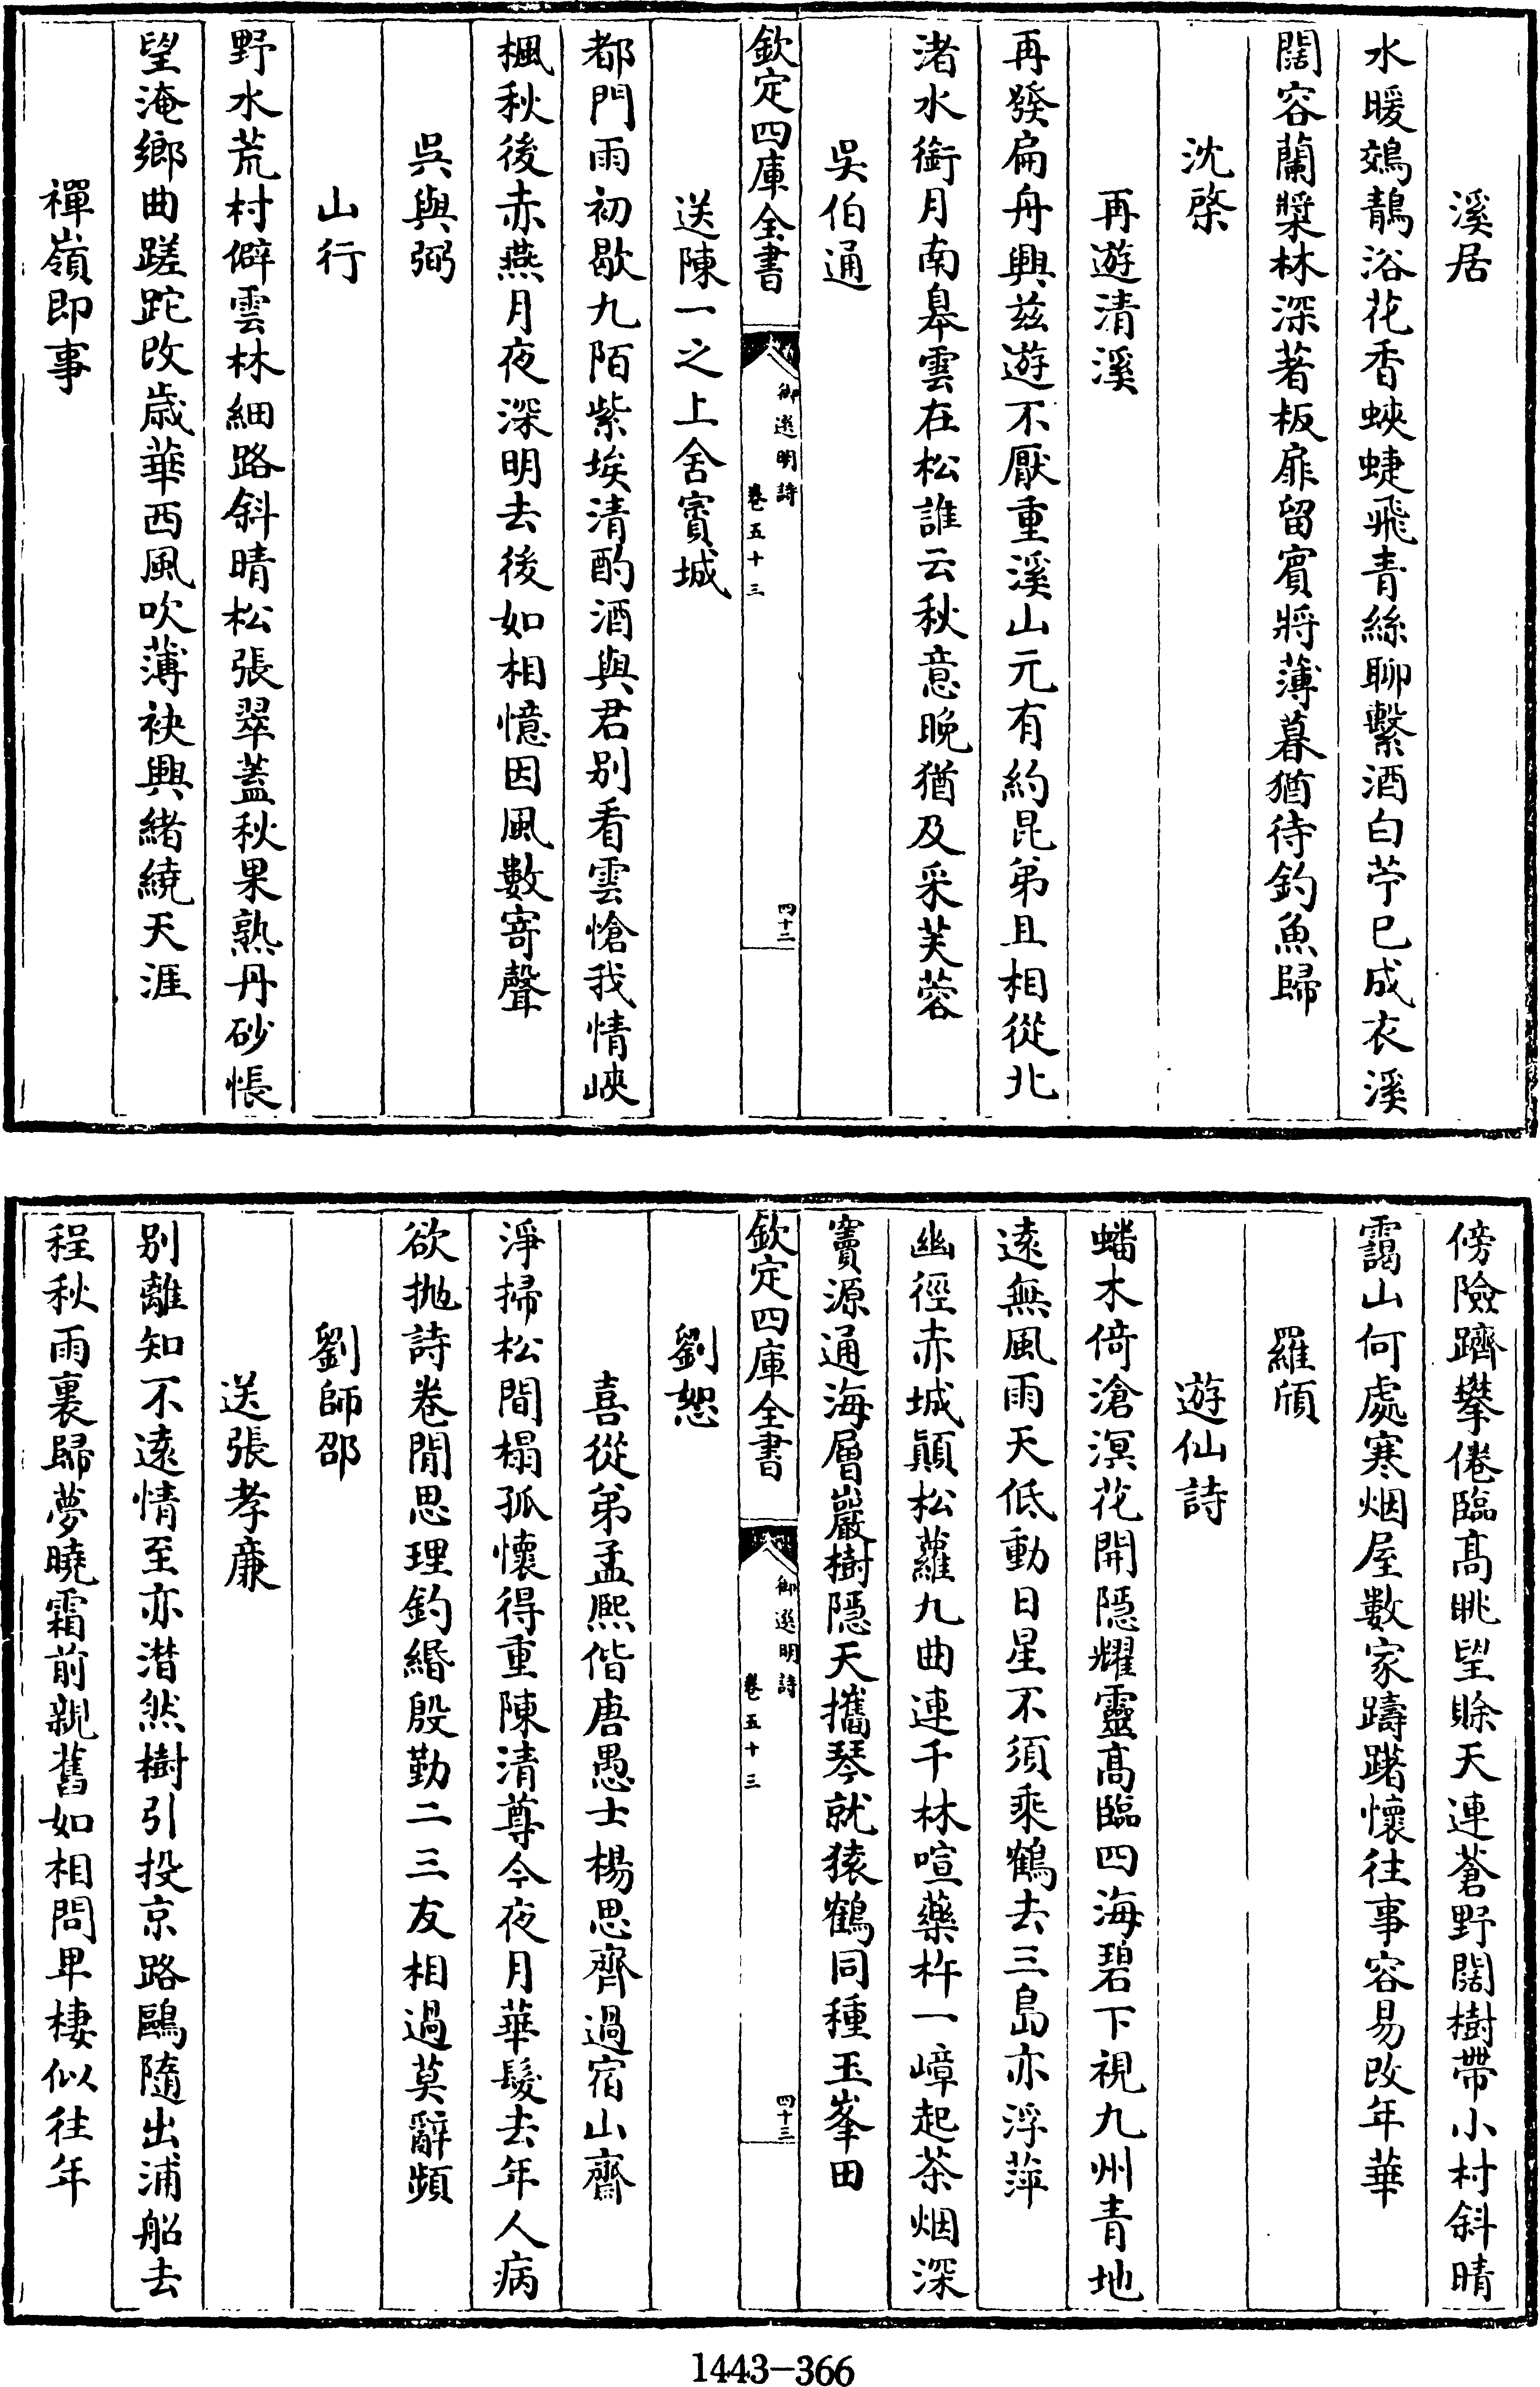 溪居
水暖鵁鶄浴花香蛺蜨飛青絲聊繫酒白苧已成衣溪
闊容蘭槳林深著板扉留賓將薄暮猶待釣魚歸
沈棨
再遊清溪
再發扁舟興兹遊不厭重溪山元有約昆弟且相從北
渚水銜月南臯雲在松誰云秋意晚猶及采芙蓉
吳伯通
欽定四庫全書
御選明詩
卷五十三
四十二
送陳一之上舍賓城
都門雨初歇九陌紫埃清酌酒與君别看雲愴我情峽
楓秋後赤燕月夜深明去後如相憶因風數寄聲
吳與弼
山行
野水荒村僻雲林細路斜晴松張翠蓋秋果熟丹砂悵
望淹鄉曲蹉跎改歳華西風吹薄袂興緒繞天涯
禪嶺即事
傍險躋攀倦臨髙眺望賒天連蒼野闊樹帶小村斜晴
靄山何處寒烟屋數家躊躇懷往事容易改年華
羅頎
遊仙詩
蟠木倚滄溟花開隱耀靈髙臨四海碧下視九州青地
遠無風雨天低動日星不須乘鶴去三島亦浮萍
幽徑赤城巔松蘿九曲連千林喧藥杵一嶂起茶烟深
竇源通海層巖樹隱天攜琴就猿鶴同種玉峯田
欽定四庫全書
御選明詩
卷五十三
四十三
劉恕
喜從弟孟熈偕唐愚士楊思齊過宿山齋
淨掃松間榻孤懷得重陳清尊今夜月華髮去年人病
欲抛詩卷閒思理釣緡殷勤二三友相過莫辭頻
劉師邵
送張孝亷
别離知不遠情至亦潜然樹引投京路鷗隨出浦船去
程秋雨裏歸夢曉霜前親舊如相問卑棲似往年
1443-366